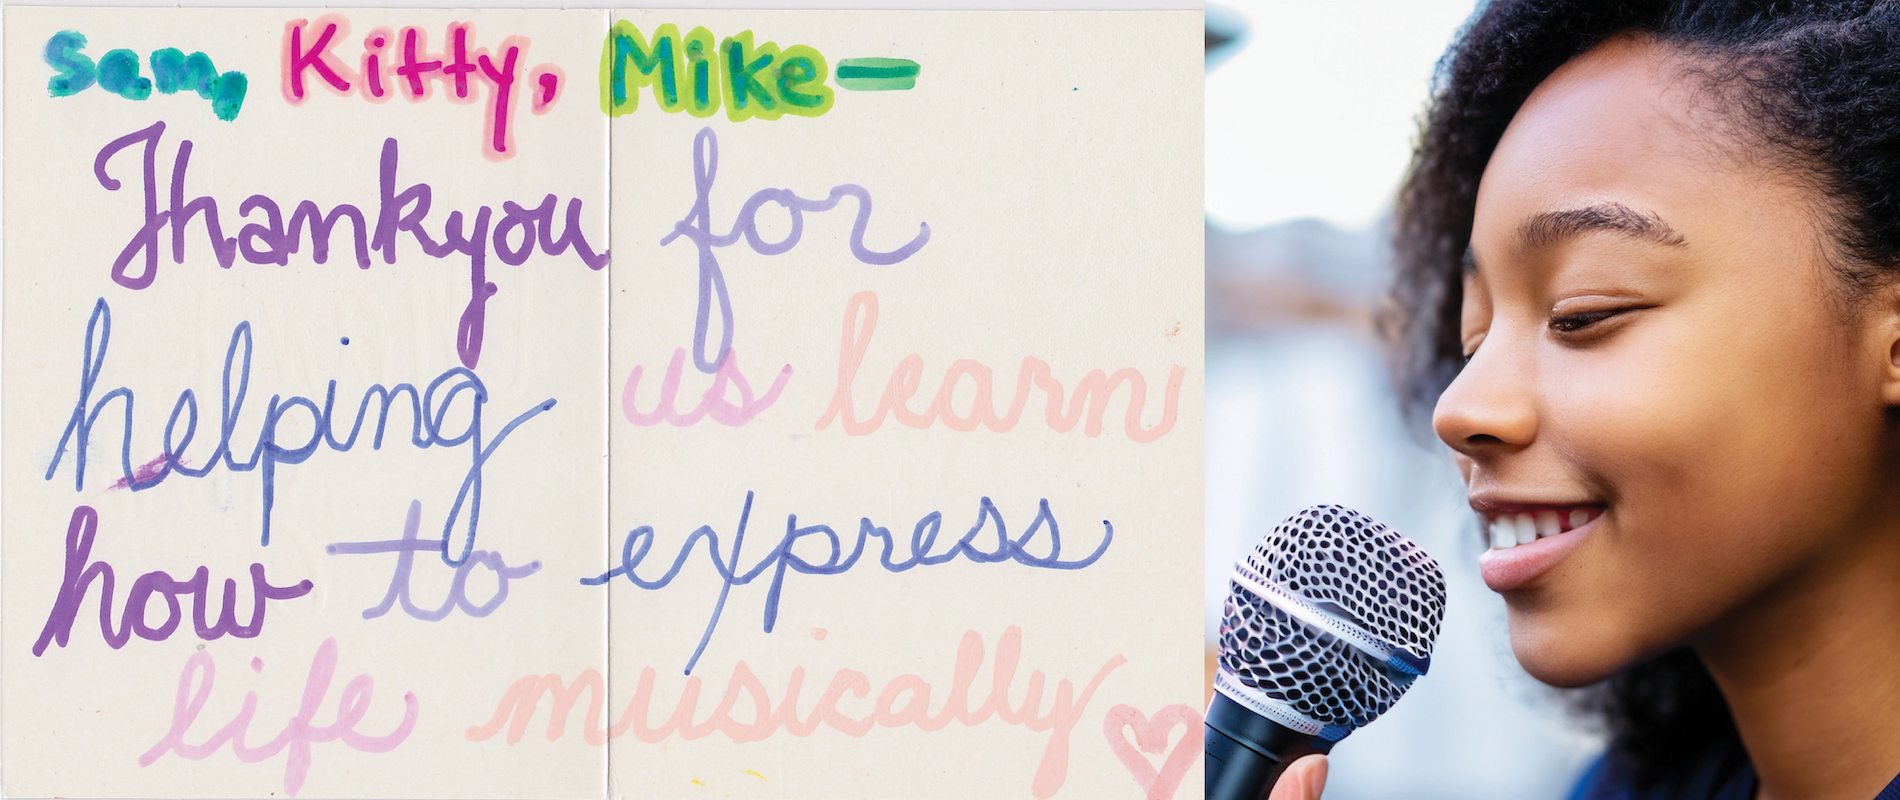 Sam, Kitty, Mike—
Thankyou for
helping us learn
how to express
life musically